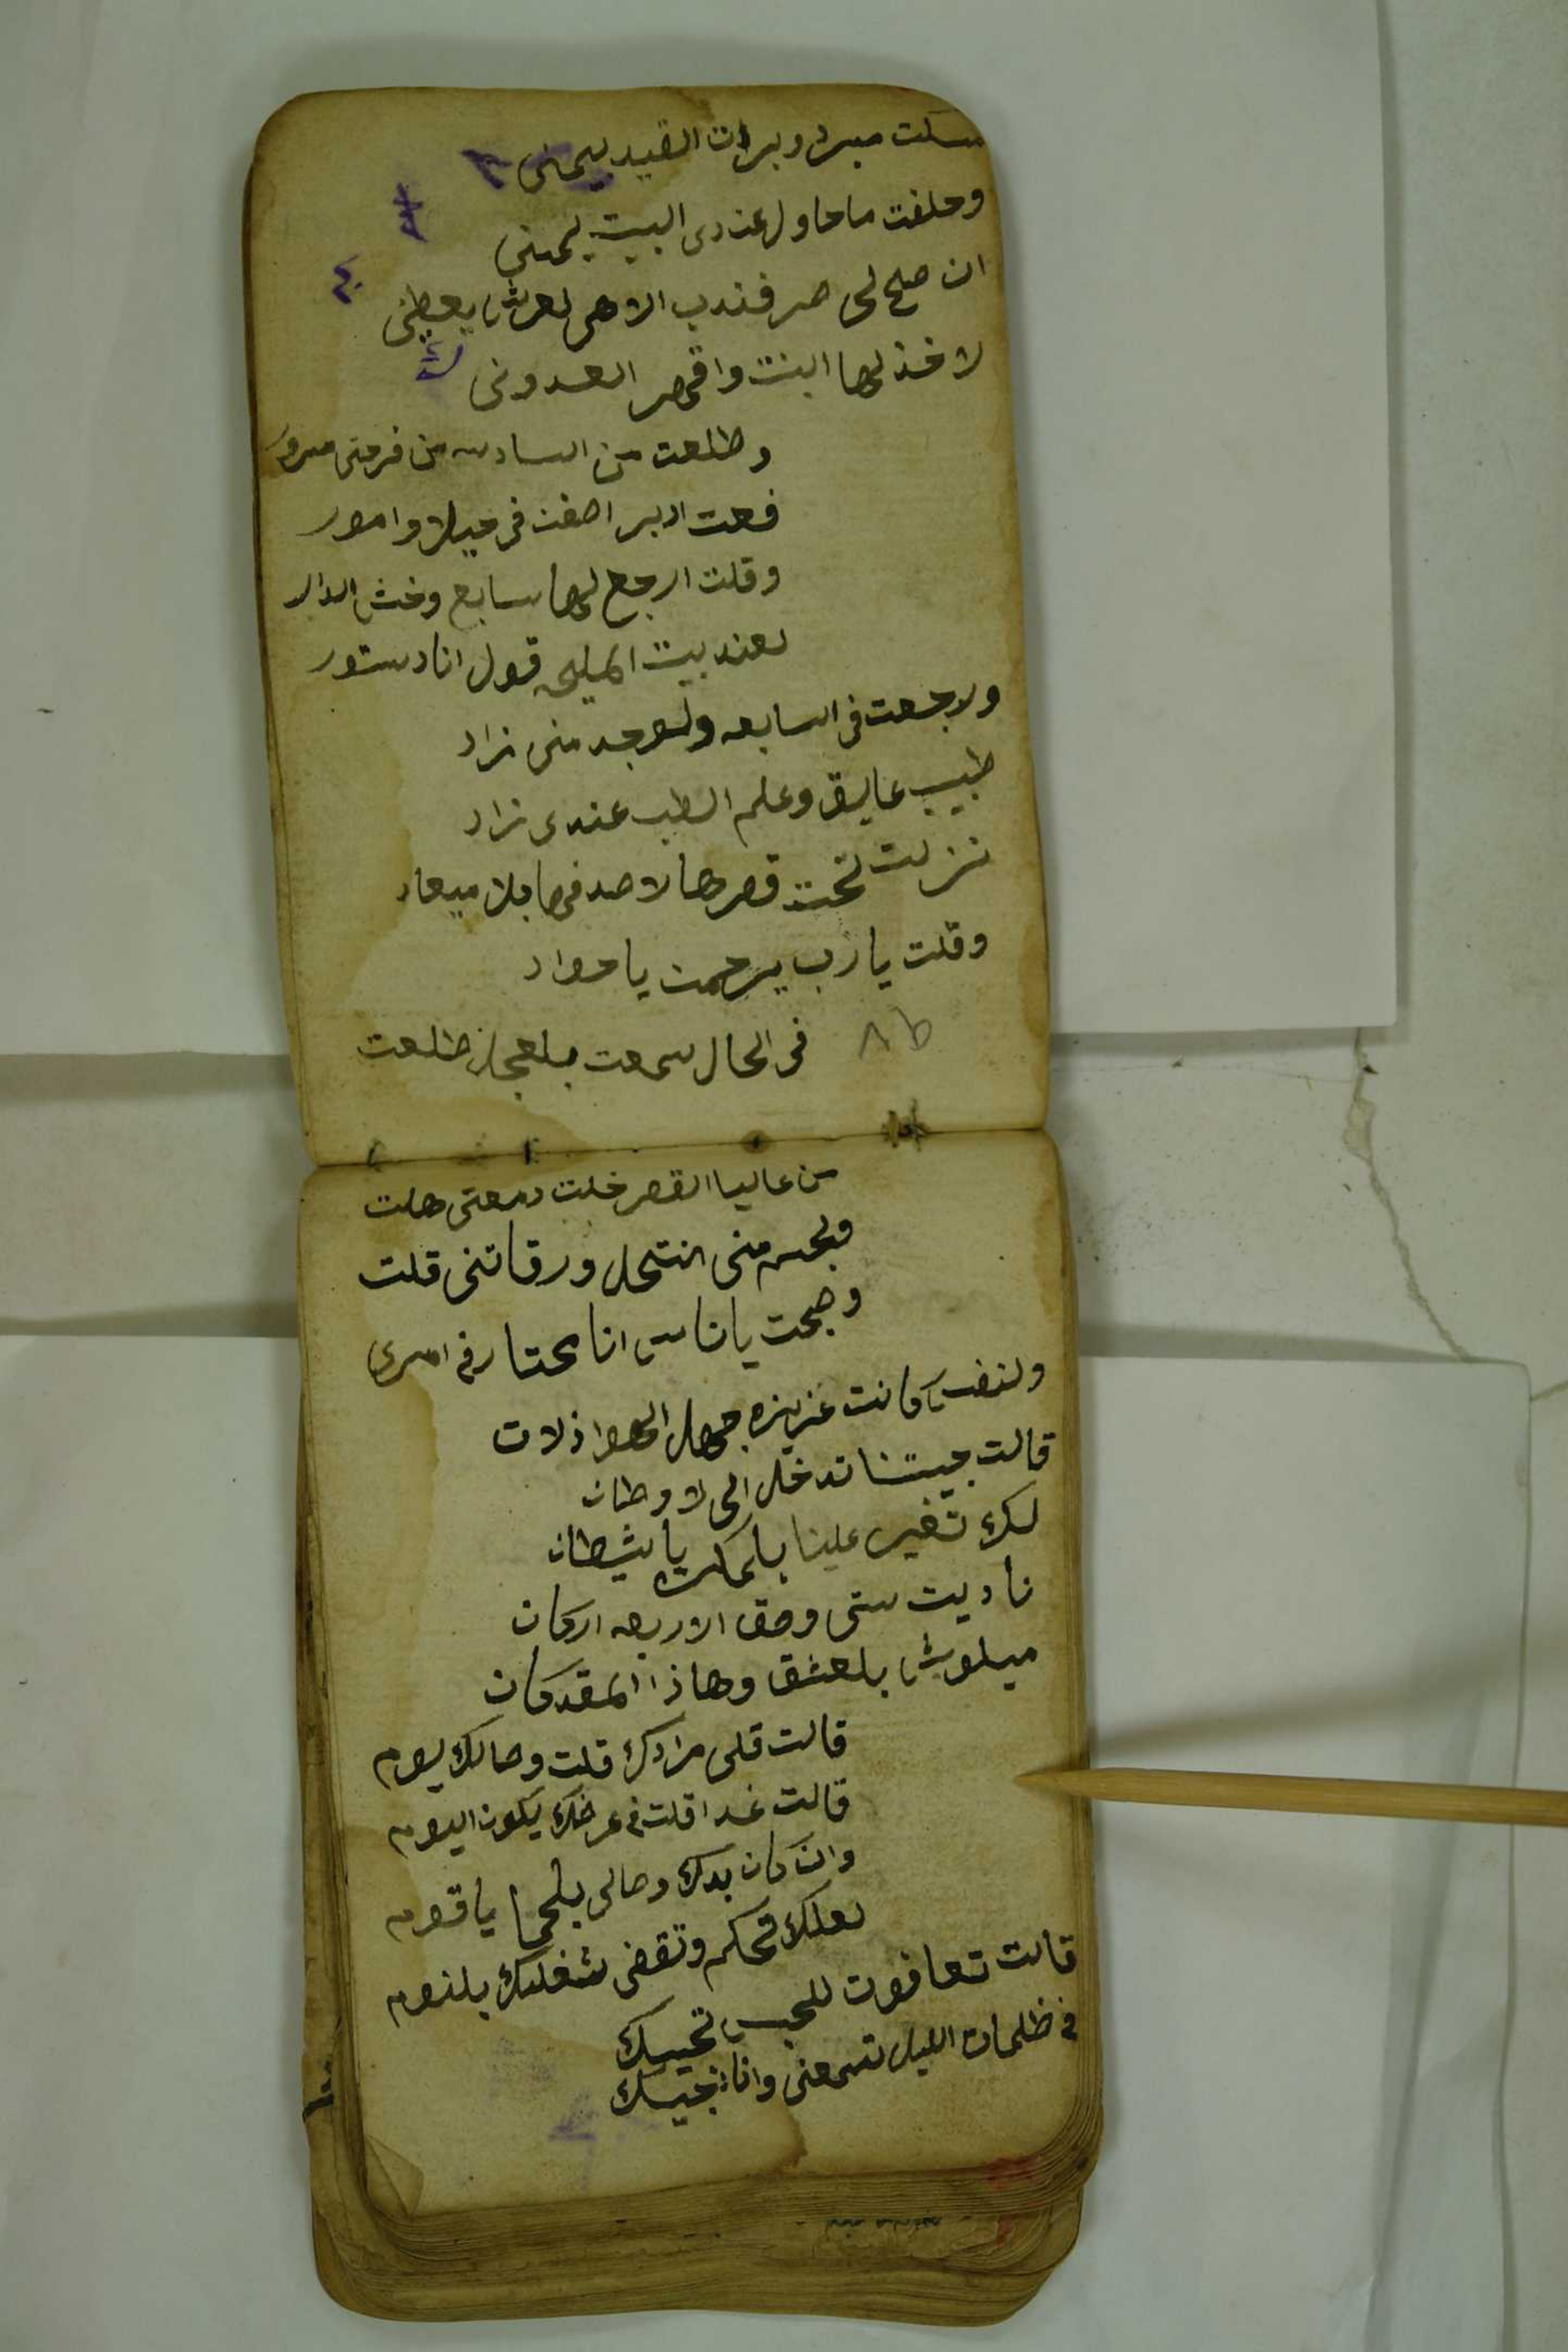 مسكت مبرد وبردت القيد بيمنى
وحلفت ماحاول عندى البيت يمنى
ان صح لى صرفندب الاهى لعرش يعطنى
لاخذ لها البنت واقهر العدونى
وطلعت من السادسه من فرحتى مسرور
فعت ادبر اصفن فى حيلا وامور
وقلت ارجع لها سابع وخش الدار
لعند بيت المليحه قول انا دستور
ورجعت فى السابعه ولوجد منى زاد
طبيب عايق وعلم الطب عندى زاد
نزلت تحت قصرها لاصدفها بلا ميعاد
وقلت يارب يرحمن ياجواد
فى الحال سمعت بلعجل طلعت
من عاليا القصر خلت دمعتى هلت
ولجسم منى انتحل ورقاتنى قلت
وصحت ياناس انا محتار فى امرى
ولنفس كانت عزيزه جهل الهوا ذلات
قالت جيتنا تدخل الى لاوطان
لك تغير علينا بلمكر ياشيطان
ناديت ستى وحق الاربعه اركان
ميلوش بلعشق وهاذا المقدكان
قالت قلى مرادك قلت وصالك يوم
قالت غدا قلت فى عرضك يكون اليوم
وان كان بدك وصالى بلحما ياقوم
لعلك تحكم وتقضى شغلك بلنوم
قالت تعا فوت للحبس تحيبك
فى ظلمات الليل تسمعنى وانا نجيك